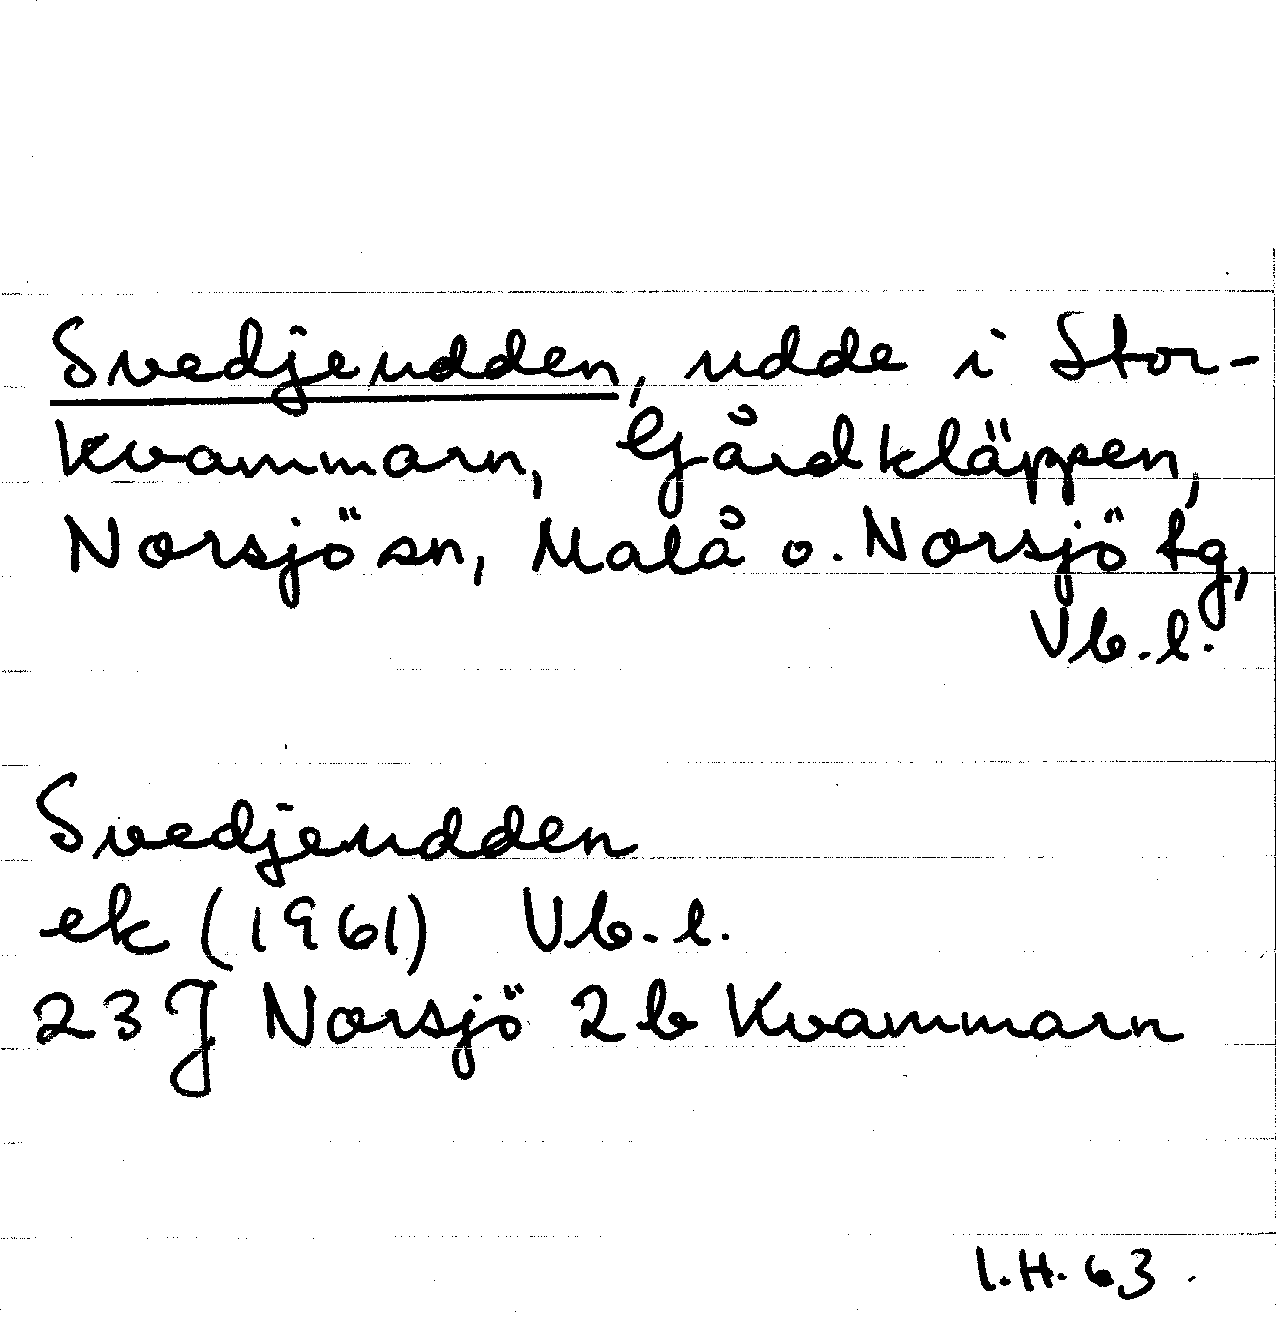 Svedjeudden, udde i Stor-
kvammarn, Gårdkläppen,
Norsjö sn, Malå o. Norsjö tg,
Vb.l.
Svedjeudden
ek (1961) Vb.l.
23 J Norsjö 2b Kvammarn
I.H. 63.